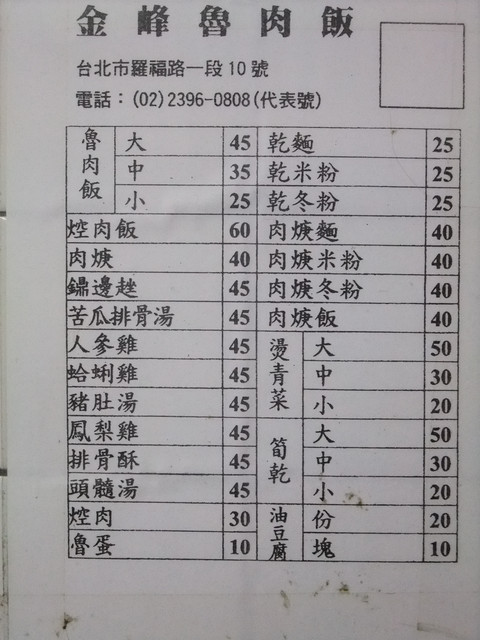 金峰魯肉飯
台北市羅福路一段10號
電話：(02)2396-0808(代表號)
魯肉飯 大 45 乾麵 25
中 35 乾米粉 25
小 25 乾冬粉 25
焢肉飯 60 肉焿麵 40
肉焿 40 肉焿米粉 40
鼎邊趖 45 肉焿冬粉 40
苦瓜排骨湯 45 肉焿飯 40
人參雞 45 燙青菜 大 50
蛤蜊雞 45 中 30
豬肚湯 45 小 20
鳳梨雞 45 筍乾 大 50
排骨酥 45 中 30
頭髓湯 45 小 20
焢肉 30 油豆腐 份 20
魯蛋 10 塊 10